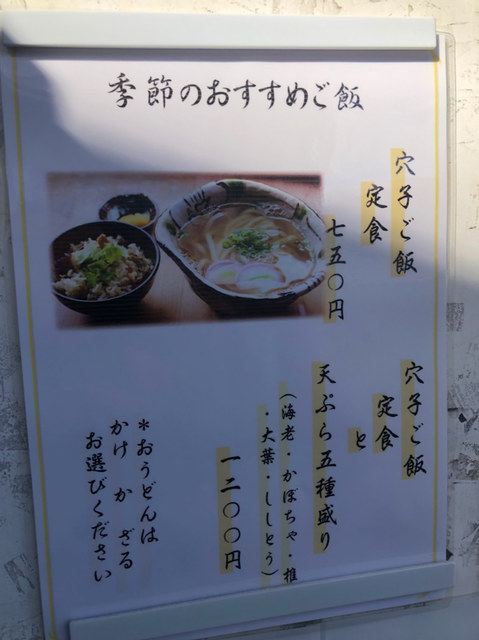 季節のおすすめご飯
穴子ご飯
定食
七五〇円
穴子ご飯
定食と
天ぷら五種盛り
(海老・かぼちゃ・椎
・大葉・ししとう)
一二〇〇円
*おうどんは
かけ か ざる
お選びください